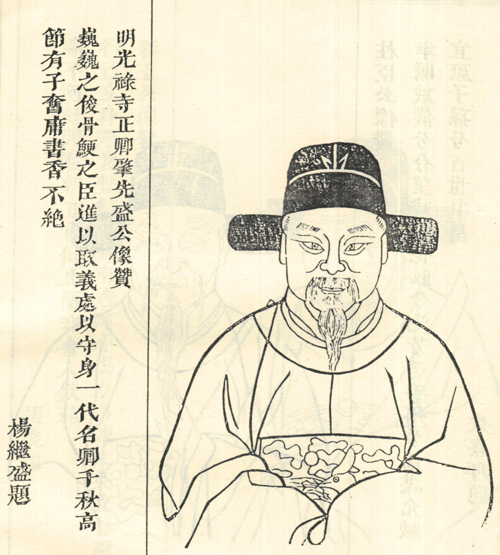 明光祿寺正卿肇先盛公像贊
巍巍之俊骨鯁之臣進以取義處以守身一代名卿千秋高
節有子奮庸書香不絶
楊繼盛題